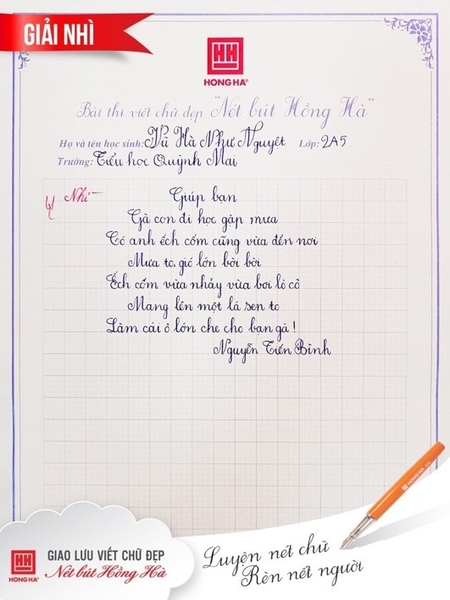 GIẢI NHÌ
HH
HONG HA®
Bài thi viết chữ đẹp "Nét bút Hồng Hà"
Họ và tên học sinh: Vũ Hà Như Nguyệt Lớp: 2A5
Trường: Tiểu học Quỳnh Mai
Nhì
Giúp bạn
Gà con đi học gặp mưa
Có anh ếch cốm cũng vừa đến nơi
Mưa to, gió lớn bời bời
Ếch cốm vừa nhảy vừa bơi lò cò
Mang lên một lá sen to
Làm cái ô lớn che cho bạn gà!
Nguyễn Tiến Bình
HH
HONG HA®
GIAO LƯU VIẾT CHỮ ĐẸP
Nét bút Hồng Hà
Luyện nét chữ
Rèn nét người